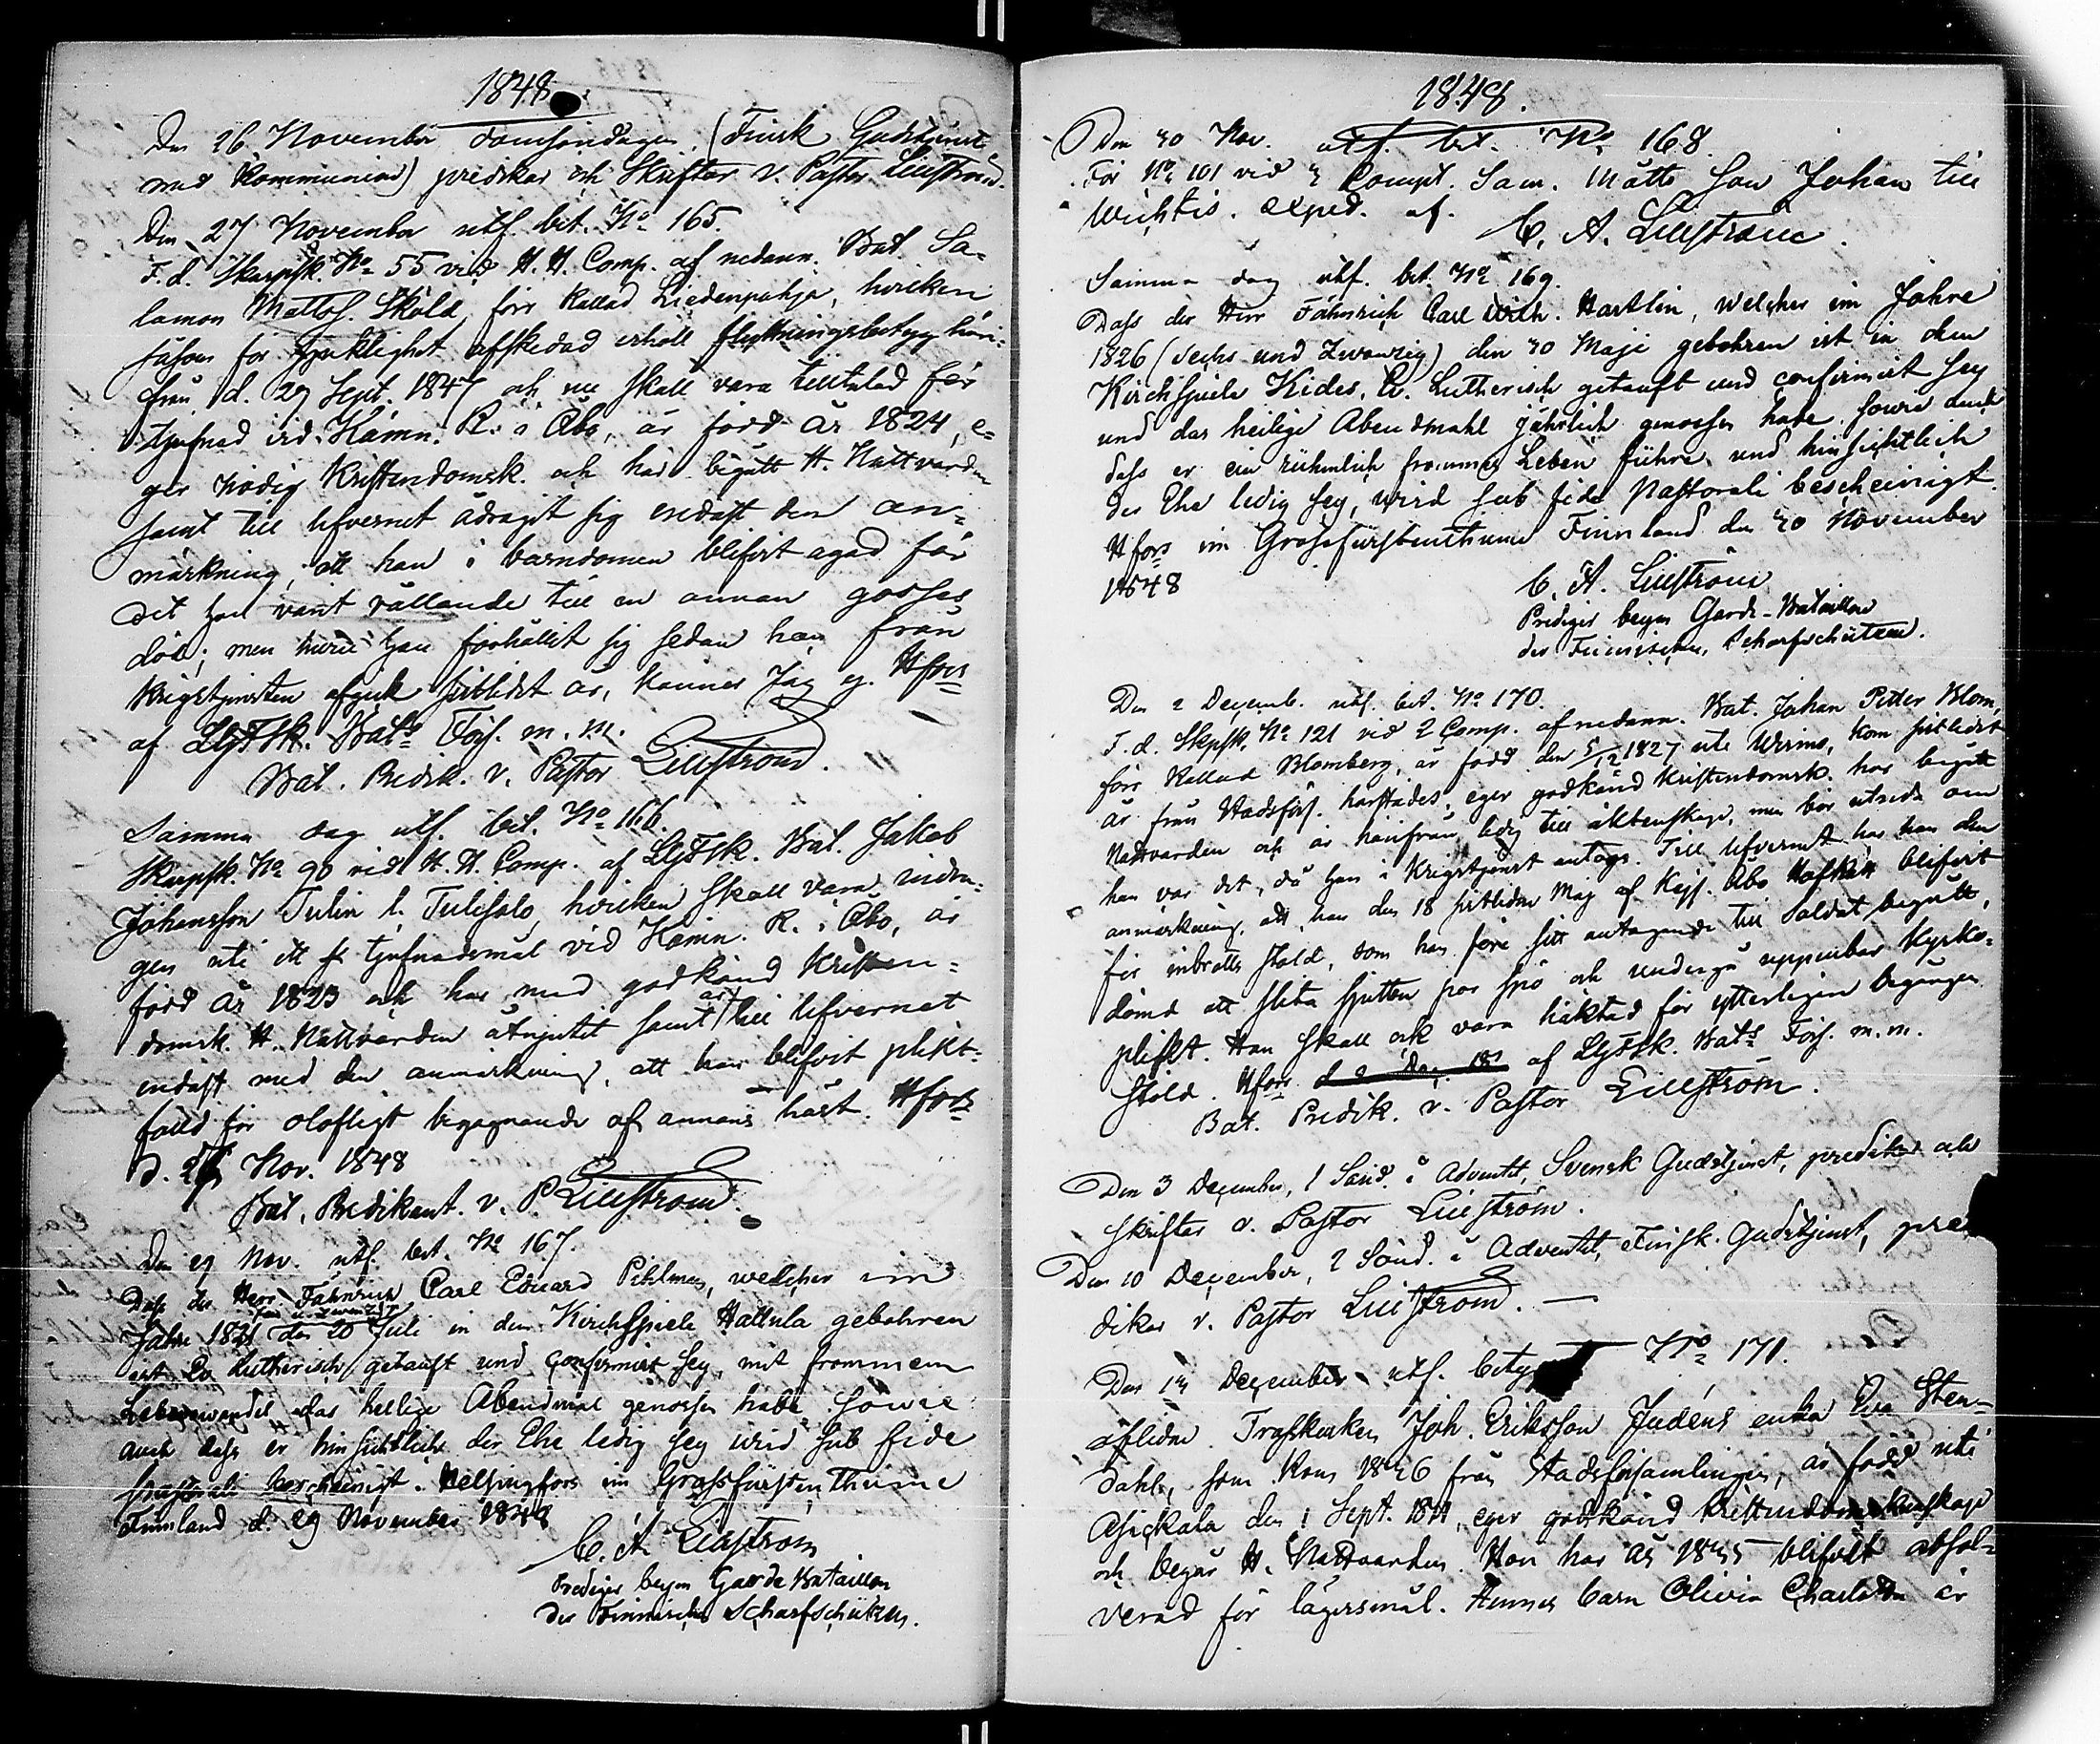 1848
Den 26 November Domsöndagen. (Finsk Gudstjenst
med Kommunion) predikar och Skriftar v. Pastor Lillström.
Den 27 November utf. bet. No 165.
F. d. Skarpsk. No 55 vid H. H. Comp. af nedann. Bat. Sa-
lomon Mattss. Sköld, förr kallad Liedenpohja, hvilken
såsom för sjuklighet afskedad erhöll flyttningsbetyg häri-
från d. 29 Sept. 1847 och nu skall vara tilltalad för
tjufnad vid Kämn. R. i Åbo, är född år 1824, e-
ger nödig Kristendomsk. och har begått H. Nattvarden
samt till lefvernet ådragit sig endast den an-
märkning, att han i barndomen blifvit agad för
det han varit vållande till en annan gosses
död; men huru han förhållit sig sedan han från
Krigstjensten afgick sistlidet år, känner Jag ej. Hfors
af LgFSk. Bats Förs. m. m.
Bat. Predik. v. Pastor Lillström.
Samma dag utf. bet. No 166.
Skarpsk. No 90 vid H. H. Comp. af LgFSk. Bat. Jakob
Johansson Tulin l. Tulisalo, hvilken skall vara indra-
gen uti ett tjufnadsmål vid Kämn. R. i Åbo, är
född år 1823 och har med godkänd Kristen-
domsk. H. Nattvarden åtnjutit samt är till lefvernet
endast med den anmärkning, att han blifvit plikt-
fälld för olofligt begagnande af annans häst. Hfors
d. 27 Nov. 1848
Bat. Predikant. v. P. Lillström.
Den 29 Nov. utf. bet. No 167.
Dass der Herr Fähnrich Carl Eduard Pihlman, welcher im
Jahre 1821 den 20 Juli in dem Kirchspiele Hattula gebohren
ist Ev. Lutherisch getauft und confirmirt sey, mit frommem
Lebenswandel das heilige Abendmal genossen habe sowie
auch dass er hinsichtlich der Ehe ledig sey wird sub fide
pastorali bescheinigt. Helsingfors im Grossfürstenthume
Finnland d. 29 November 1848
C. A. Lillström
Prediger beym Garde Bataillon
der Finnischen Scharfschützen.
1848.
Den 30 Nov. utf. bet. No 168.
För No 101 vid 3 Comp. Sam. Matts Son Johan till
Wichtis. exped. af.
C. A. Lillström.
Samma dag utf. bet. No 169.
Dass der Herr Fähnrich Carl Hartlin, welcher im Jahre
1826 (Sechs und Zwanzig) den 30 Maji gebohren ist in dem
Kirchspiele Kides, Ev. Lutherisch getauft und confirmirt sey
und das heilige Abendmahl jährlich genossen habe, sowie auch
dass er ein rühmlich frommes Leben führe und hinsichtlich
der Ehe ledig sey, wird sub fide Pastorali bescheinigt.
Hfors im Grossfürstenthume Finnland den 30 November
1848
C. A. Lillström
Prediger beym Garde-Bataillon
der Finnischen Scharfschützen.
Den 2 Decemb. utf. bet. No 170.
F. d. Skpsk. No 121 vid 2 Comp. af nedann. Bat. Johan Petter Blom,
förr kallad Blomberg, är född den 5/12 1827 uti Wirmo, kom sistlidet
år från Stadsförs. härstädes, eger godkänd Kristendomsk. har begått
Nattvarden och är härifrån ledig till äktenskap, men bör utreda om
han var det, då han i Krigstjenst antogs. Till lefvernet har han den
anmärkning, att han den 18 sistlidne Maj af Kejs. Åbo Hofrätt blifvit
för inbrotts stöld, som han före sitt antagande till Soldat begått,
dömd att slita sjutton par spö och undergå uppenbar Kyrko-
plikt. Han skall ock vara häktad för ytterligare begången
stöld. Hfors af LgFSk. Bats Förs. m. m.
Bat. Predik. v. Pastor Lillström.
Den 3 December, 1 Sönd. i Adventet, Svensk Gudstjenst, predikar och
skriftar v. Pastor Lillström.
Den 10 December, 2 Sönd. i Adventet, Finsk Gudstjenst, pre
dikar v. Pastor Lillström.
Den 13 December utf. betyg No 171.
aflidne Trosskusken Joh. Eriksson Judéns enka Eva Sten-
dahl, som kom 1846 från Stadsförsamlingen, är född uti
Asickala den 1 Sept. 1811, eger godkänd Kristendomskunskap
och begår H. Nattvarden. Hon har år 1835 blifvit absol-
verad för lägersmål. Hennes barn Olivia Charlotta är